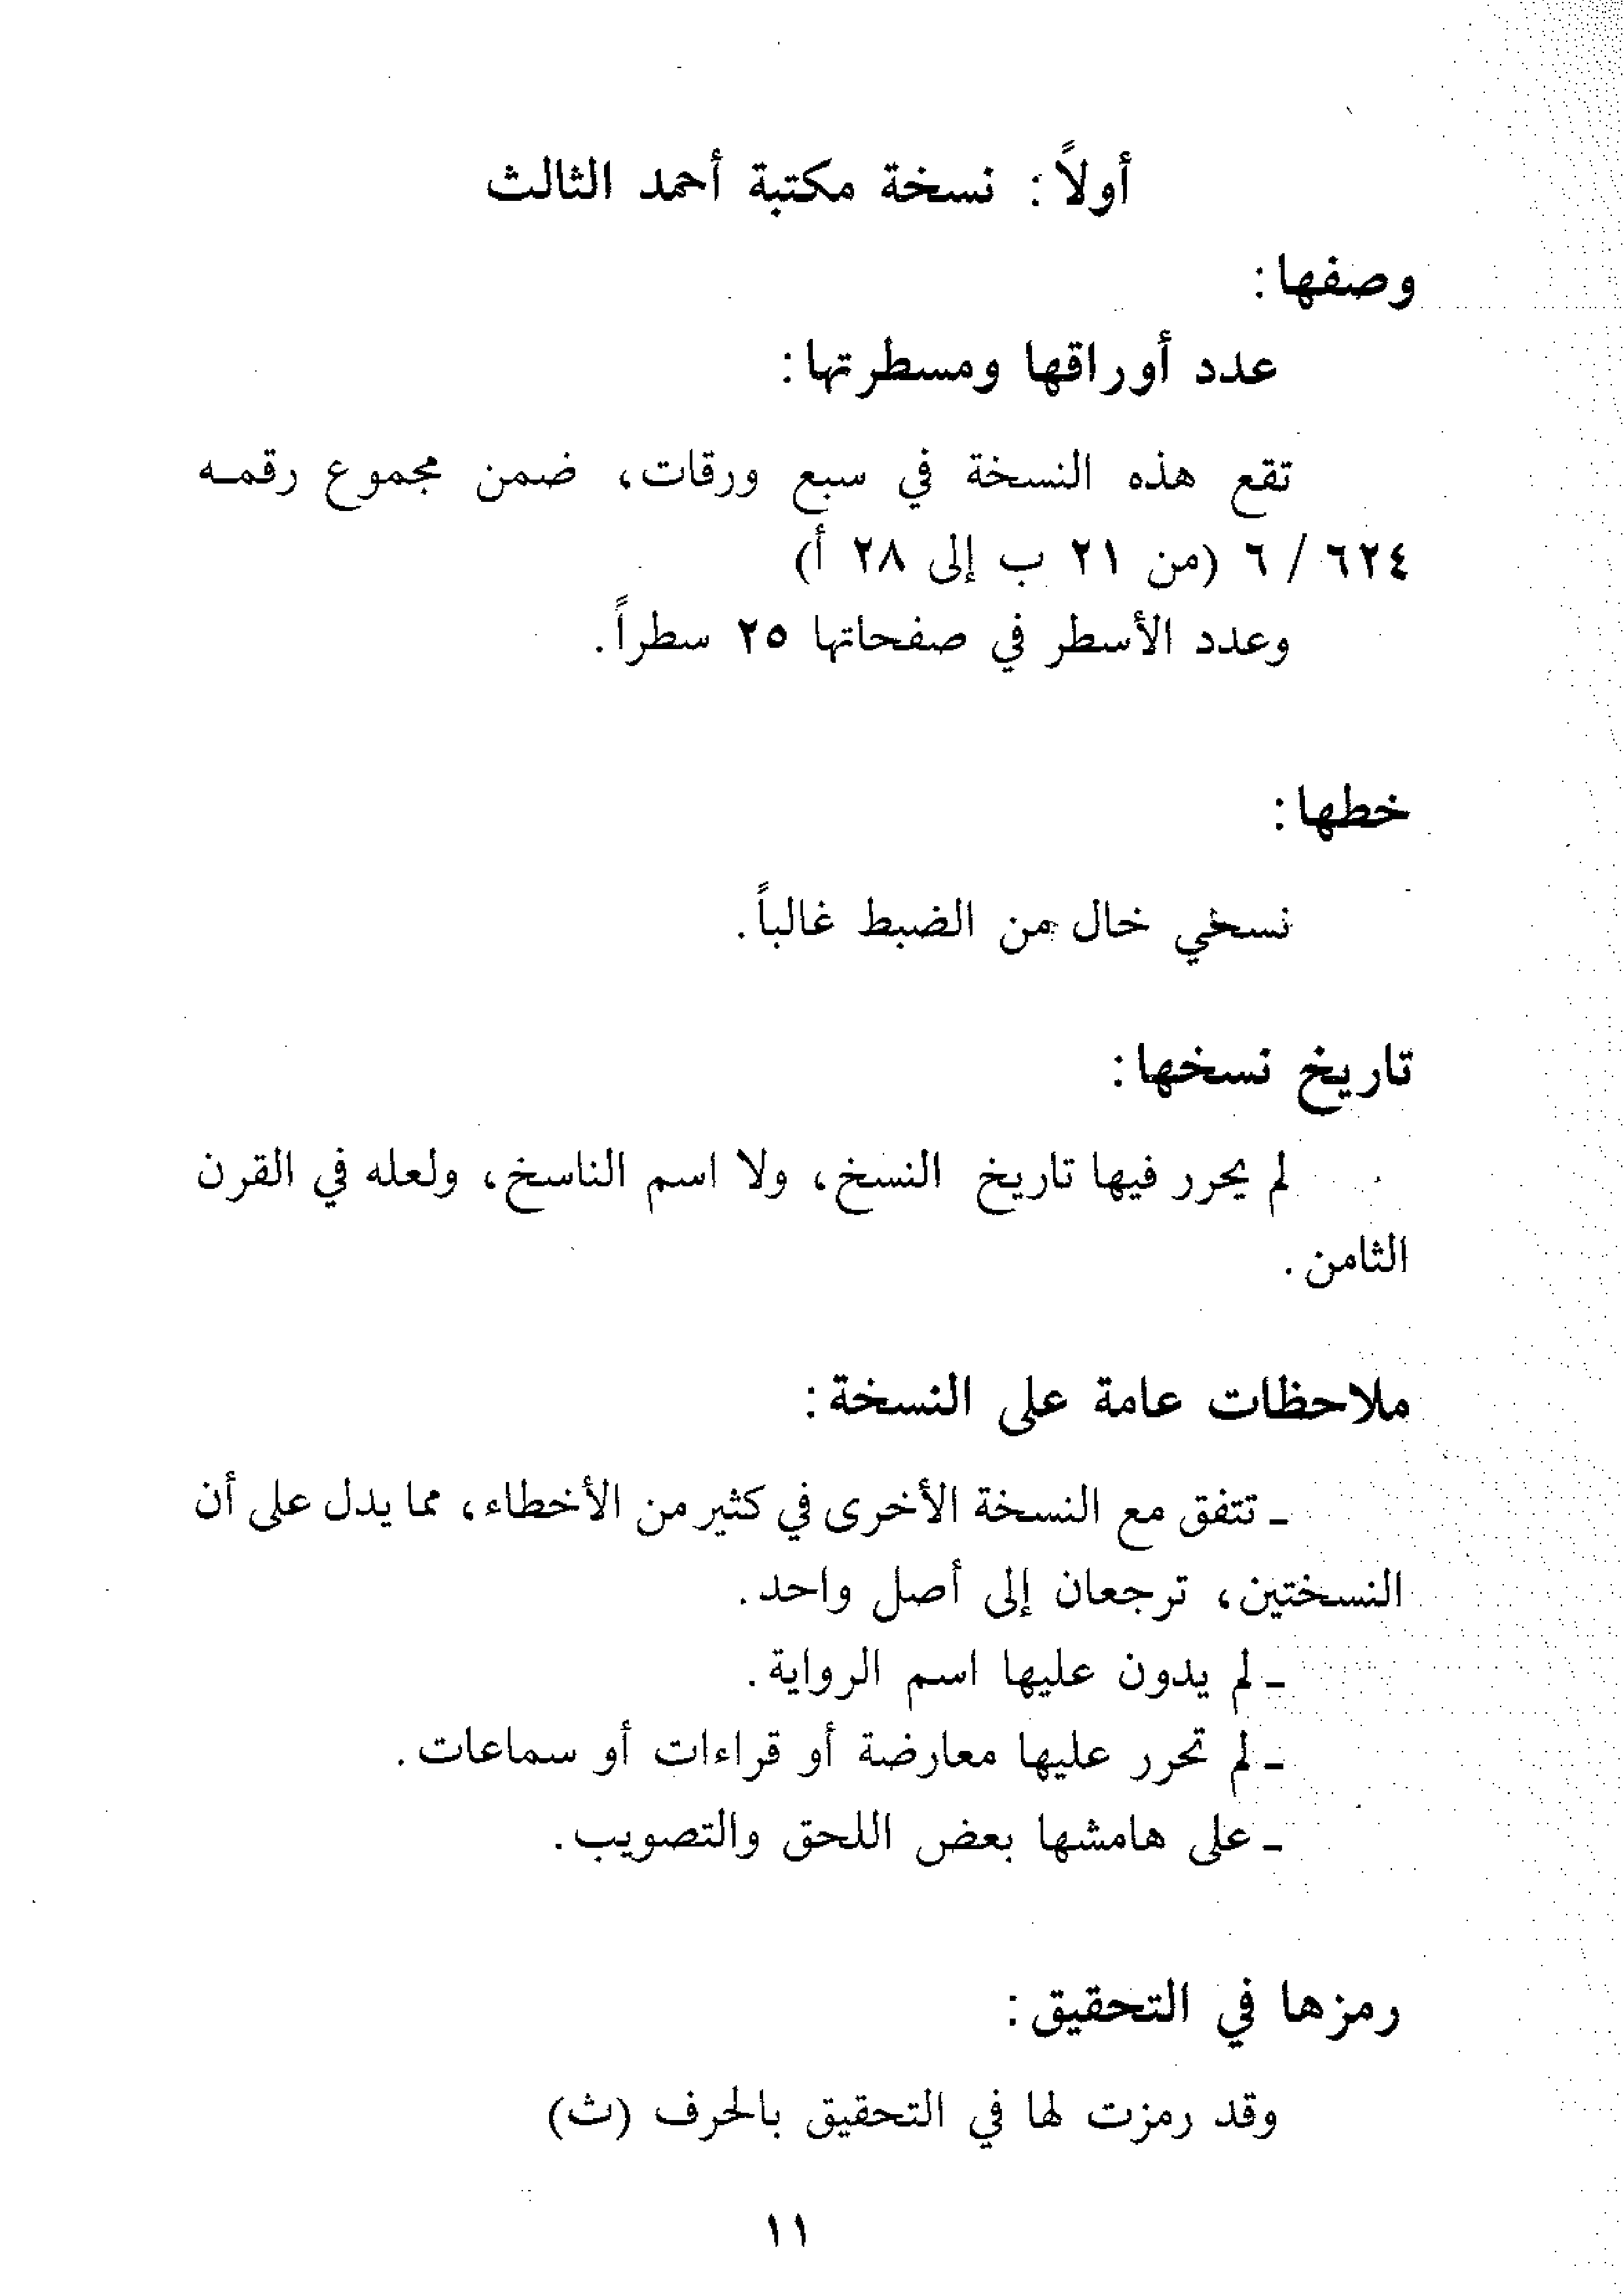 أولاً: نسخة مكتبة أحمد الثالث
وصفها:
عدد أوراقها ومسطرتها:
تقع هذه النسخة في سبع ورقات، ضمن مجموع رقمه
٦٢٤ / ٦ (من ٢١ ب إلى ٢٨ أ)
وعدد الأسطر في صفحاتها ٢٥ سطراً.
خطها:
نسخي خال من الضبط غالباً.
تاريخ نسخها:
لم يحرر فيها تاريخ النسخ، ولا اسم الناسخ، ولعله في القرن
الثامن.
ملاحظات عامة على النسخة:
ـ تتفق مع النسخة الأخرى في كثير من الأخطاء، مما يدل على أن
النسختين، ترجعان إلى أصل واحد.
ـ لم يدون عليها اسم الرواية.
ـ لم تحرر عليها معارضة أو قراءات أو سماعات.
ـ على هامشها بعض اللحق والتصويب.
رمزها في التحقيق:
وقد رمزت لها في التحقيق بالحرف (ث)
١١